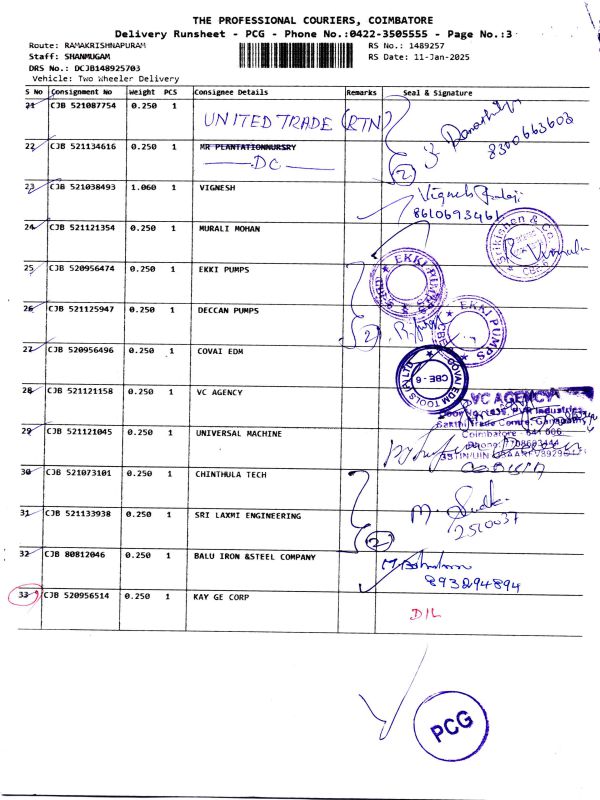 THE PROFESSIONAL COURIERS, COIMBATORE
Delivery Runsheet - PCG - Phone No.:0422-3505555 - Page No.:3
Route: RAMAKRISHNAPURAM
RS No.: 1489257
Staff: SHANMUGAM
RS Date: 11-Jan-2025
DRS No.: DCJB148925703
Vehicle: Two Wheeler Delivery
S No Consignment No Weight PCS Consignee Details Remarks Seal & Signature
21 CJB 521087754 0.250 1 UNITED TRADE (RTN)
8300663603
22 CJB 521134616 0.250 1 MR PLANTATIONNURSRY
DC
2
23 CJB 521038493 1.060 1 VIGNESH
Vignesh
8610693461
24 CJB 521121354 0.250 1 MURALI MOHAN
Srikishan & Co
25 CJB 520956474 0.250 1 EKKI PUMPS
EKKI PUMPS
26 CJB 521125947 0.250 1 DECCAN PUMPS
2
EKKI PUMPS
27 CJB 520956496 0.250 1 COVAI EDM
COVAI EDM TOOLS (P) LTD
CBE - 6
28 CJB 521121158 0.250 1 VC AGENCY
VC AGENCY
29 CJB 521121045 0.250 1 UNIVERSAL MACHINE
Coimbatore - 641 006
30 CJB 521073101 0.250 1 CHINTHULA TECH
31 CJB 521133938 0.250 1 SRI LAXMI ENGINEERING
2
32 CJB 80812046 0.250 1 BALU IRON &STEEL COMPANY
893294894
33 CJB 520956514 0.250 1 KAY GE CORP
D/L
PCG